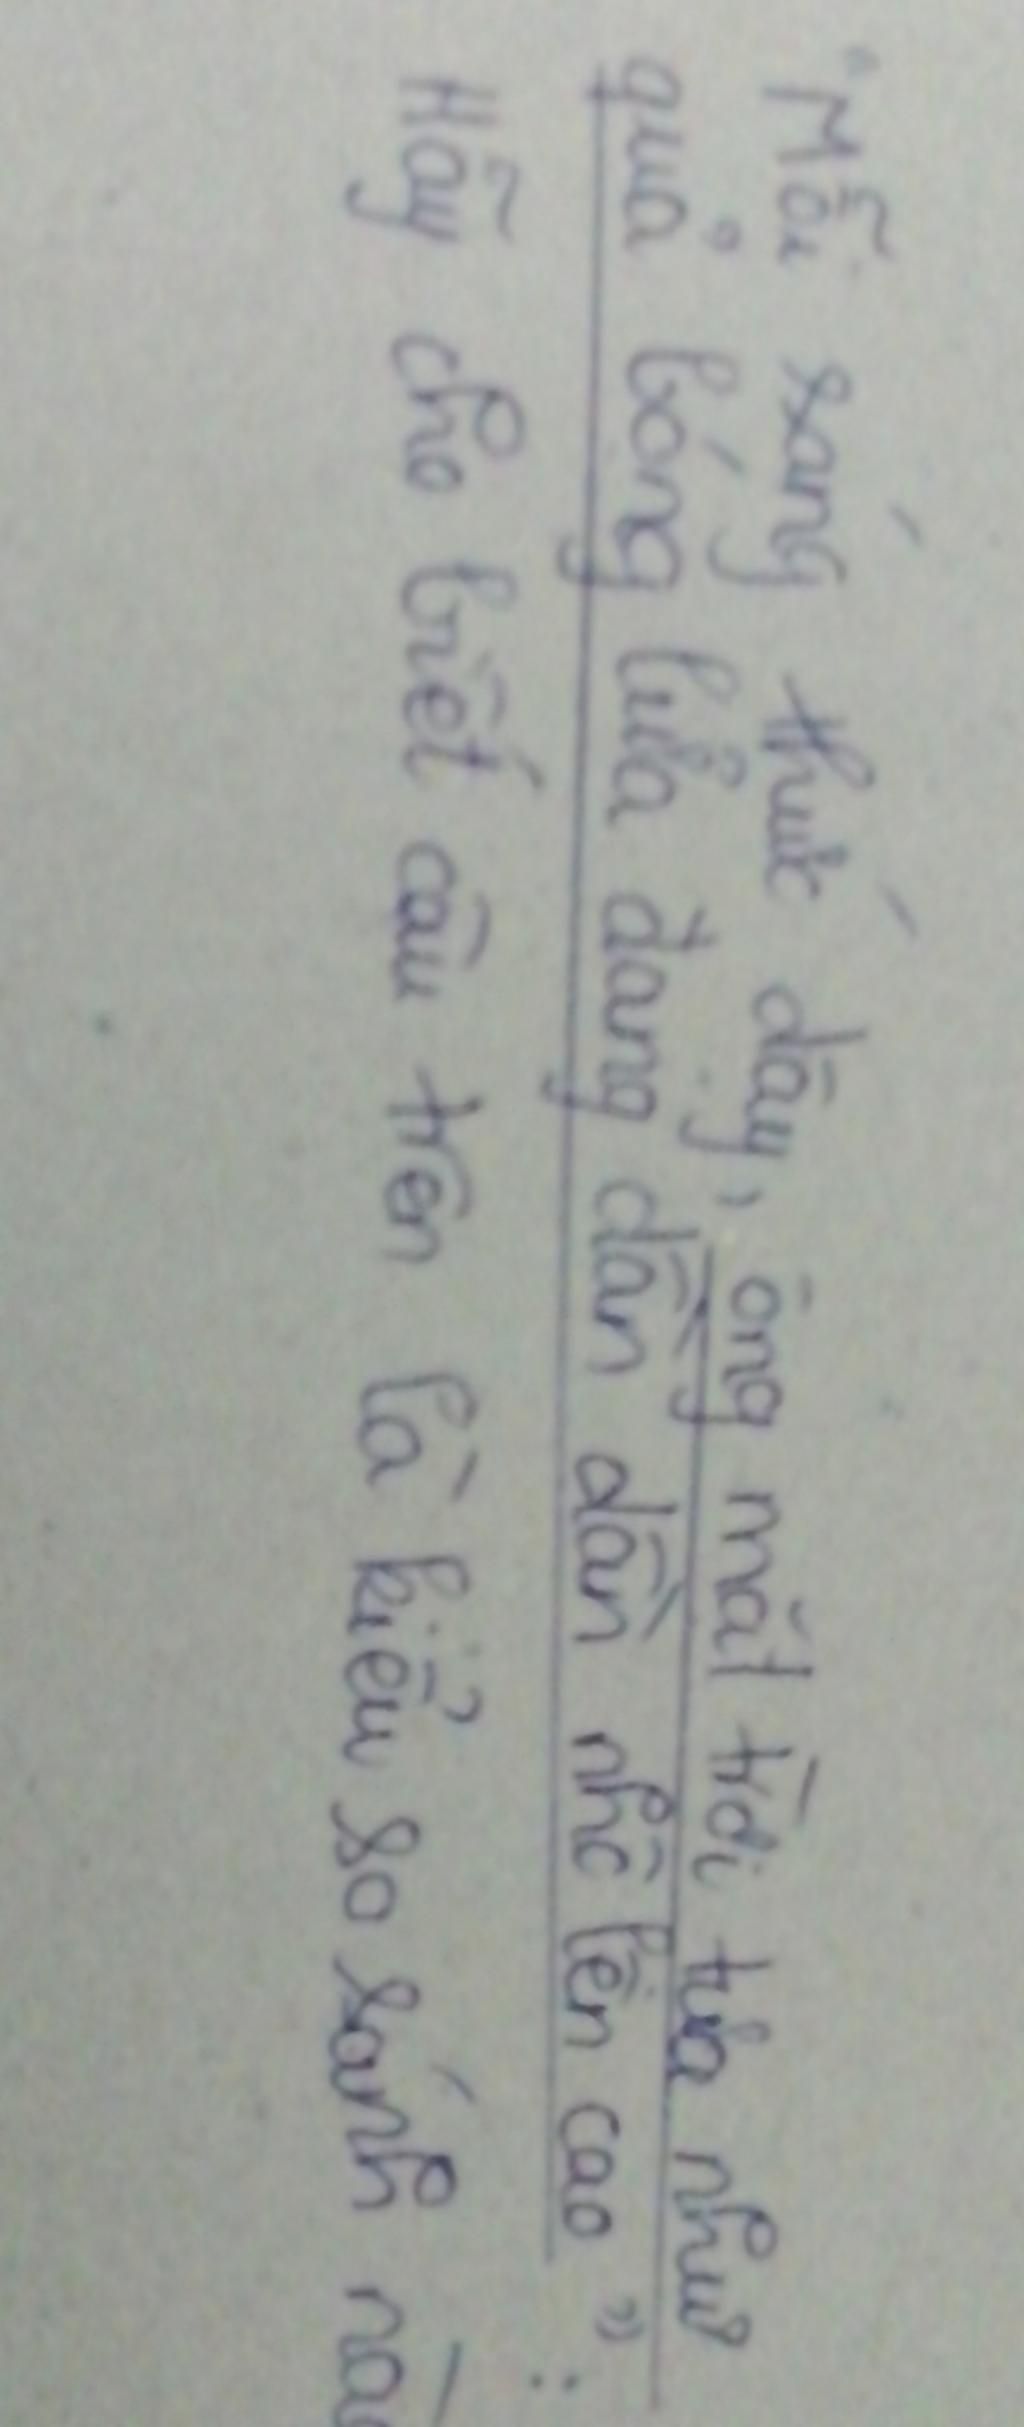 "Mỗi sáng thức dậy, ông mặt trời tựa như
quả bóng lửa đang dần dần nhô lên cao":
Hãy cho biết câu trên là kiểu so sánh